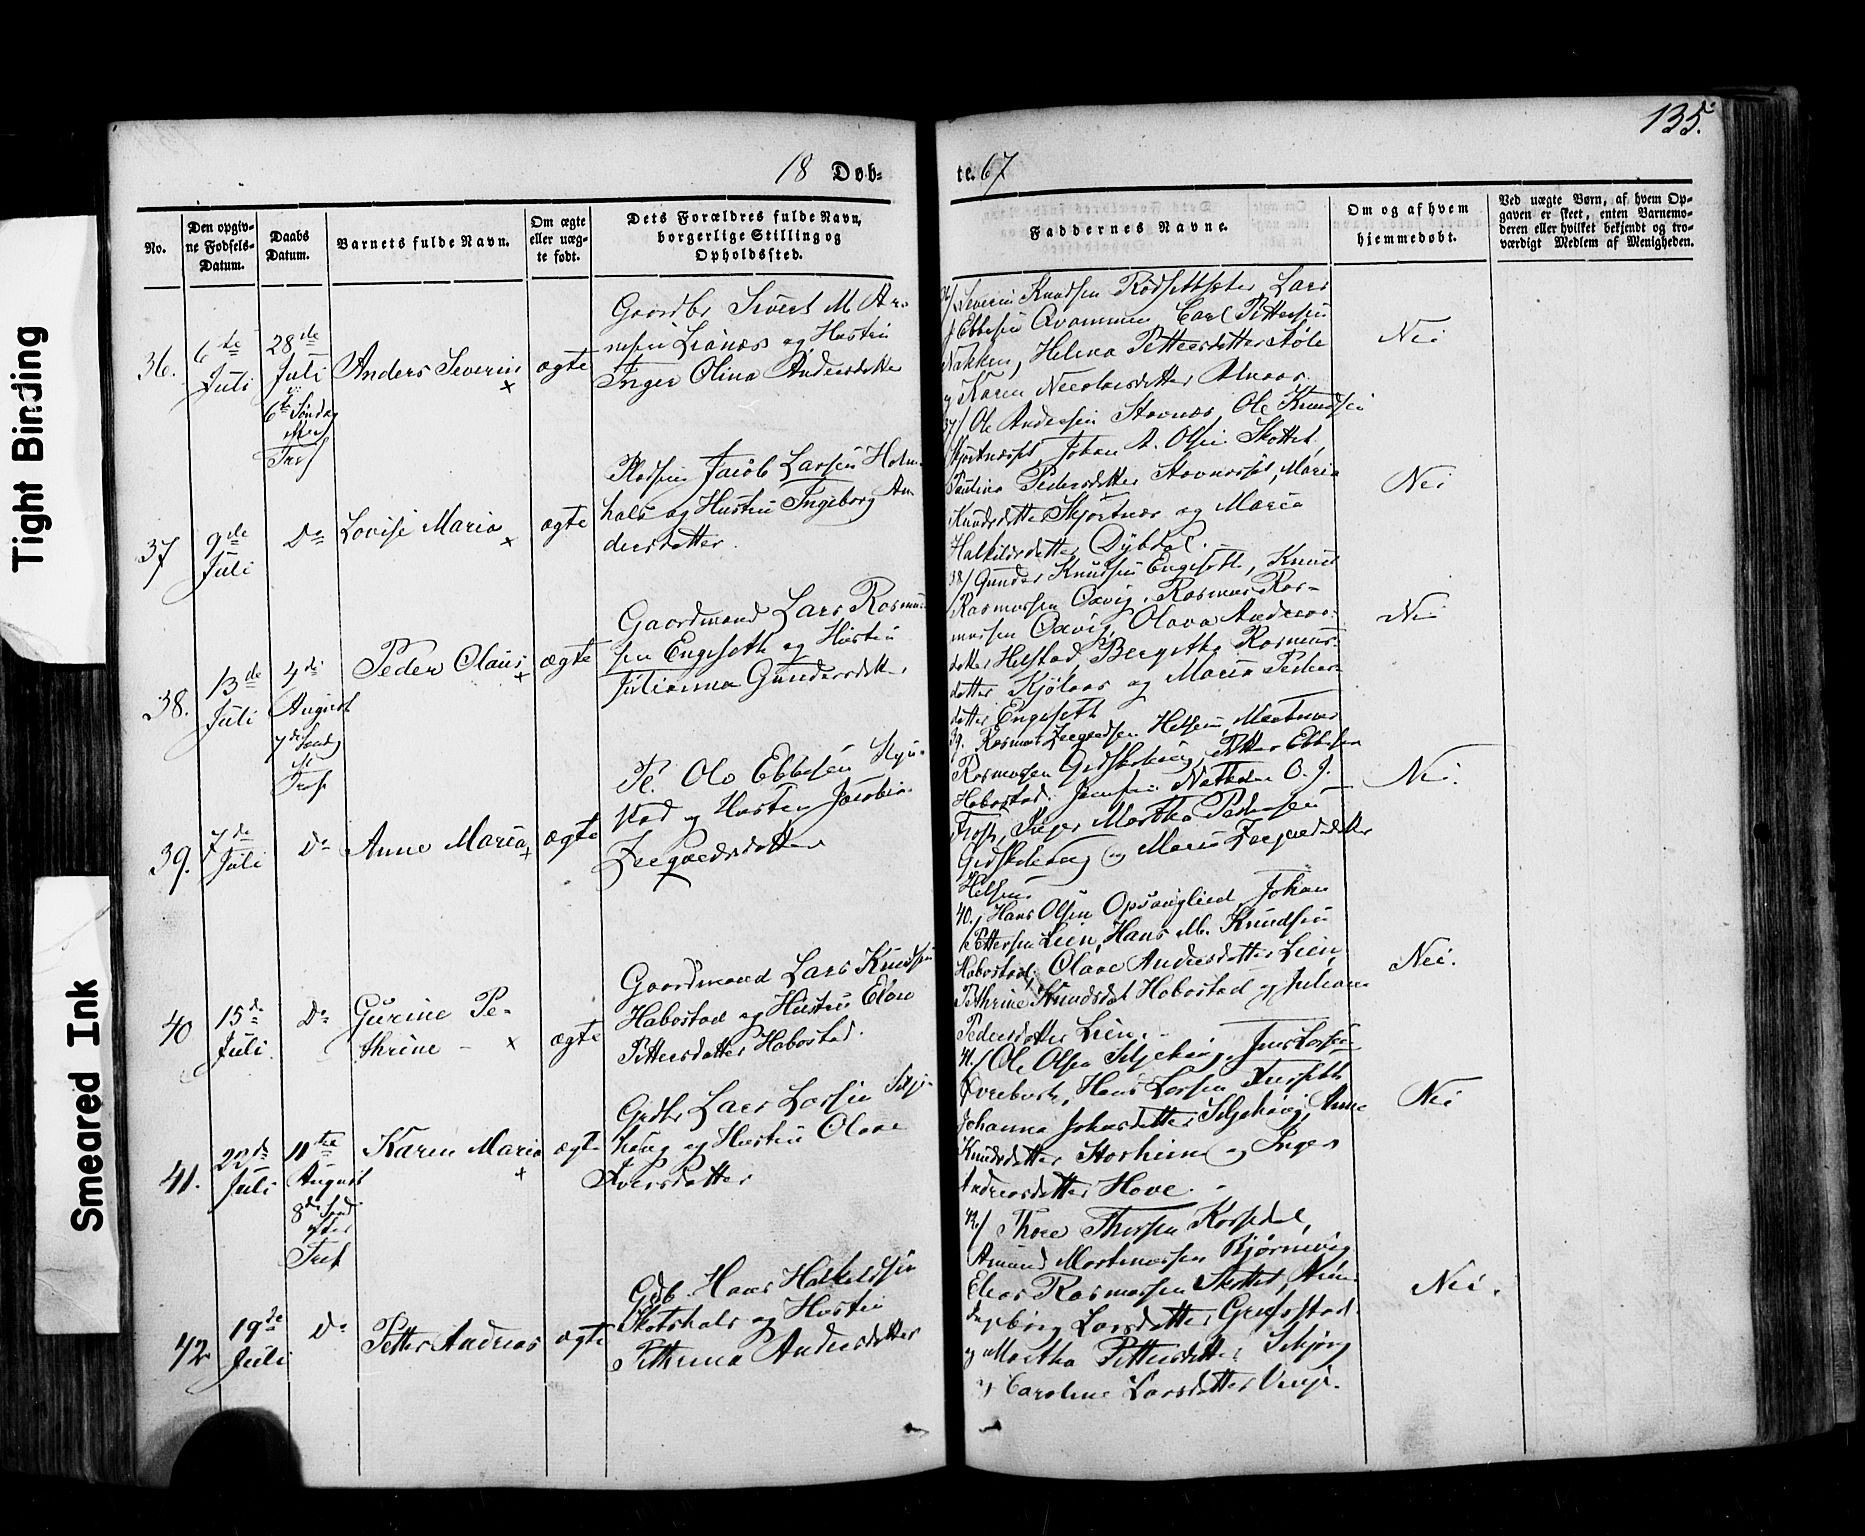 135.
18 Døb-
te. 67
No.
Den opgiv-
ne Fødsels-
Datum.
Daabs
Datum.
Barnets fulde Navn.
Om ægte
eller uæg-
te født.
Dets Forældres fulde Navn,
borgerlige Stilling og
Opholdssted.
Faddernes Navne.
Om og af hvem
hjemmedøbt.
Ved uægte Børn, af hvem Op-
gaven er skeet, enten Barnemo-
deren eller hvilket bekjendt og tro-
værdigt Medlem af Menigheden.
36.
6te
Juli
28de
Juli
6te Søndag
efter
Tref
Anders Severin
x
ægte
Gaardbr Sivert M. Ar-
nesen Lianæs og Hustru
Inger Olina Andersdatter
36/ Severin Knudsen Rødsetsæter, Lars
J Ebbesen Qvammen Carl Pettersen
Nakken, Helena Pettersdatter Støle
og Karen Nicolaisdatter Alnæs.
Nei
37
9de
Juli
Do
Lovise Maria
x
ægte
Pladsm Jacob Larsen Holm-
hals og Hustru Ingeborg An-
dersdatter.
37/ Ole Andersen Stavnæs, Ole Knudsen
Skjortnæsset, Johan A. Olsen Skottet
Paulina Pedersdatter Stavnæsset, Maria
Knudsdatter Skjortnæs og Maria
Halkildsdatter Dybdal.
Nei
38.
13de
Juli
4de
August
7de Sønd
e.
Tref.
Peder Olaus
x
ægte
Gaardmand Lars Rasmus-
sen Engeseth og Hustru
Julianna Gundersdatter
38/ Gunder Knudsen Engeseth, Knud
Rasmussen Oxvig, Rasmus Ras-
mussen Oxvig, Olava Andreas-
datter Helstad, Bergitha Rasmus-
datter Kjølaas og Maria Peders-
datter Engeseth
Nei
39.
7de
Juli
Do
Anne Maria
x
ægte
Pl. Ole Ebbesen Hgu-
stad og Hustru Jacobine
Zeegaardsdatter
39. Rasmus Zeegaardsen Helsem, Martinus
Rasmussen Gudskehaug, Petter Ebbesen
Habostad. Jomfru Nathalie O. J.
Frost, Inger Martha Pedersen
Gudskehaug og Maria Zeegaardsdatter
Helsem.
Nei.
40
15de
Juli.
Do
Gurine Pe-
thrine - x
ægte
Gaardmand Lars Knudsen
Habostad og Hustru Elen
Pettersdatter Habostad.
40. Hans Olsen Opsanglied, Johan
Pettersen Lien, Hans M. Knudsen
Habostad, Olave Andersdatter Lien
Pethrine Knudsdat Habostad og Juliane
Pedersdatter Lien. -
Nei.
41.
22de
Juli
11te
August
8de Sønd
efter
Tref
Karen Maria
x
ægte
Grdbr Lars Larsen Silje-
haug og Hustru Olave
Iversdatter
41/ Ole Olsen Siljehaug, Jens Larsen
Øvrebust, Hans Larsen Furseth
Johanna Johansdatter Siljehaug, Anne
Knudsdatter Storheim og Inger
Andreasdatter Hove. -
Nei
42
19de
Juli
Do
Petter Andreas
ægte
Gdb. Hans Halkildsen
Skotshals og Hustru
Pethrina Andersdatter
42/ Thore Thorsen Korsedal,
Amund Mortenussen Bjørnevig
Elias Rasmussen Skottet,
Ingeborg Larsdatter Grufsstad
og Martha Pettersdatter
og Caroline Larsdatter
Nei.
Tight Binding
Smeared Ink